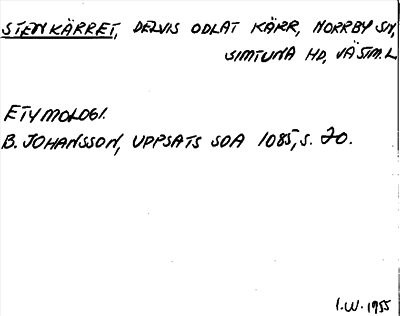 STENKÄRRET, DELVIS ODLAT KÄRR, NORRBY SN,
SIMTUNA HD, VÄSTM. L.
ETYMOLOGI.
B. JOHANSSON, UPPSATS SOA 1085, S. 20.
I.W. 1955